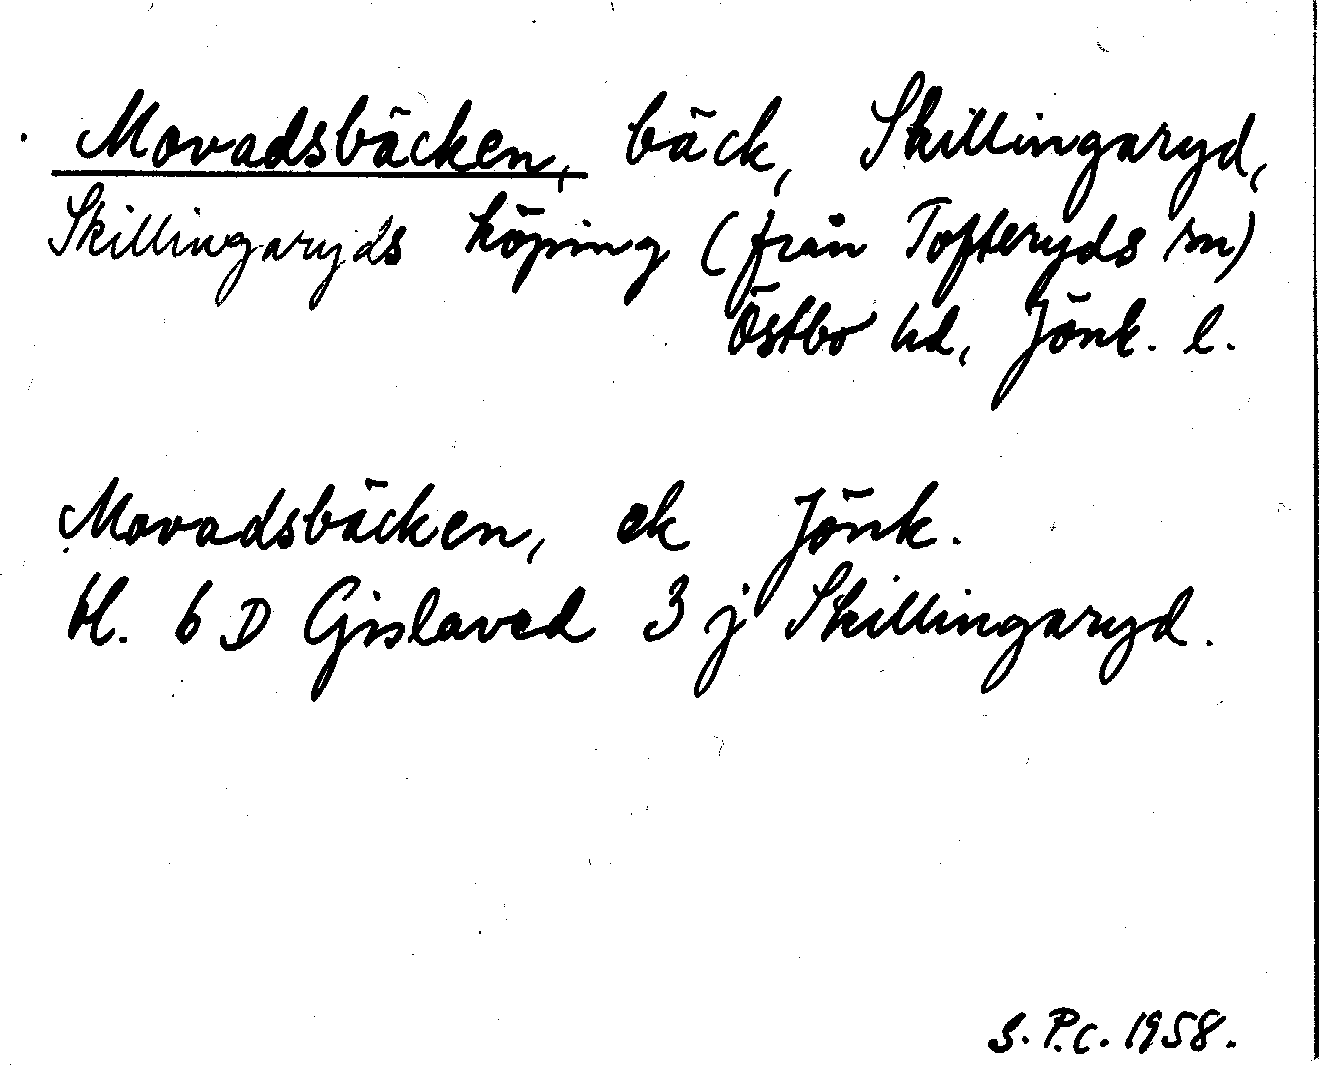 Movadsbäcken, bäck, Skillingaryd,
Skillingaryds köping (från Tofteryds sn)
Östbo hd, Jönk. l.
Movadsbäcken, ek Jönk.
bl. 6 D Gislaved 3 j Skillingaryd.
S.P.C. 1958.